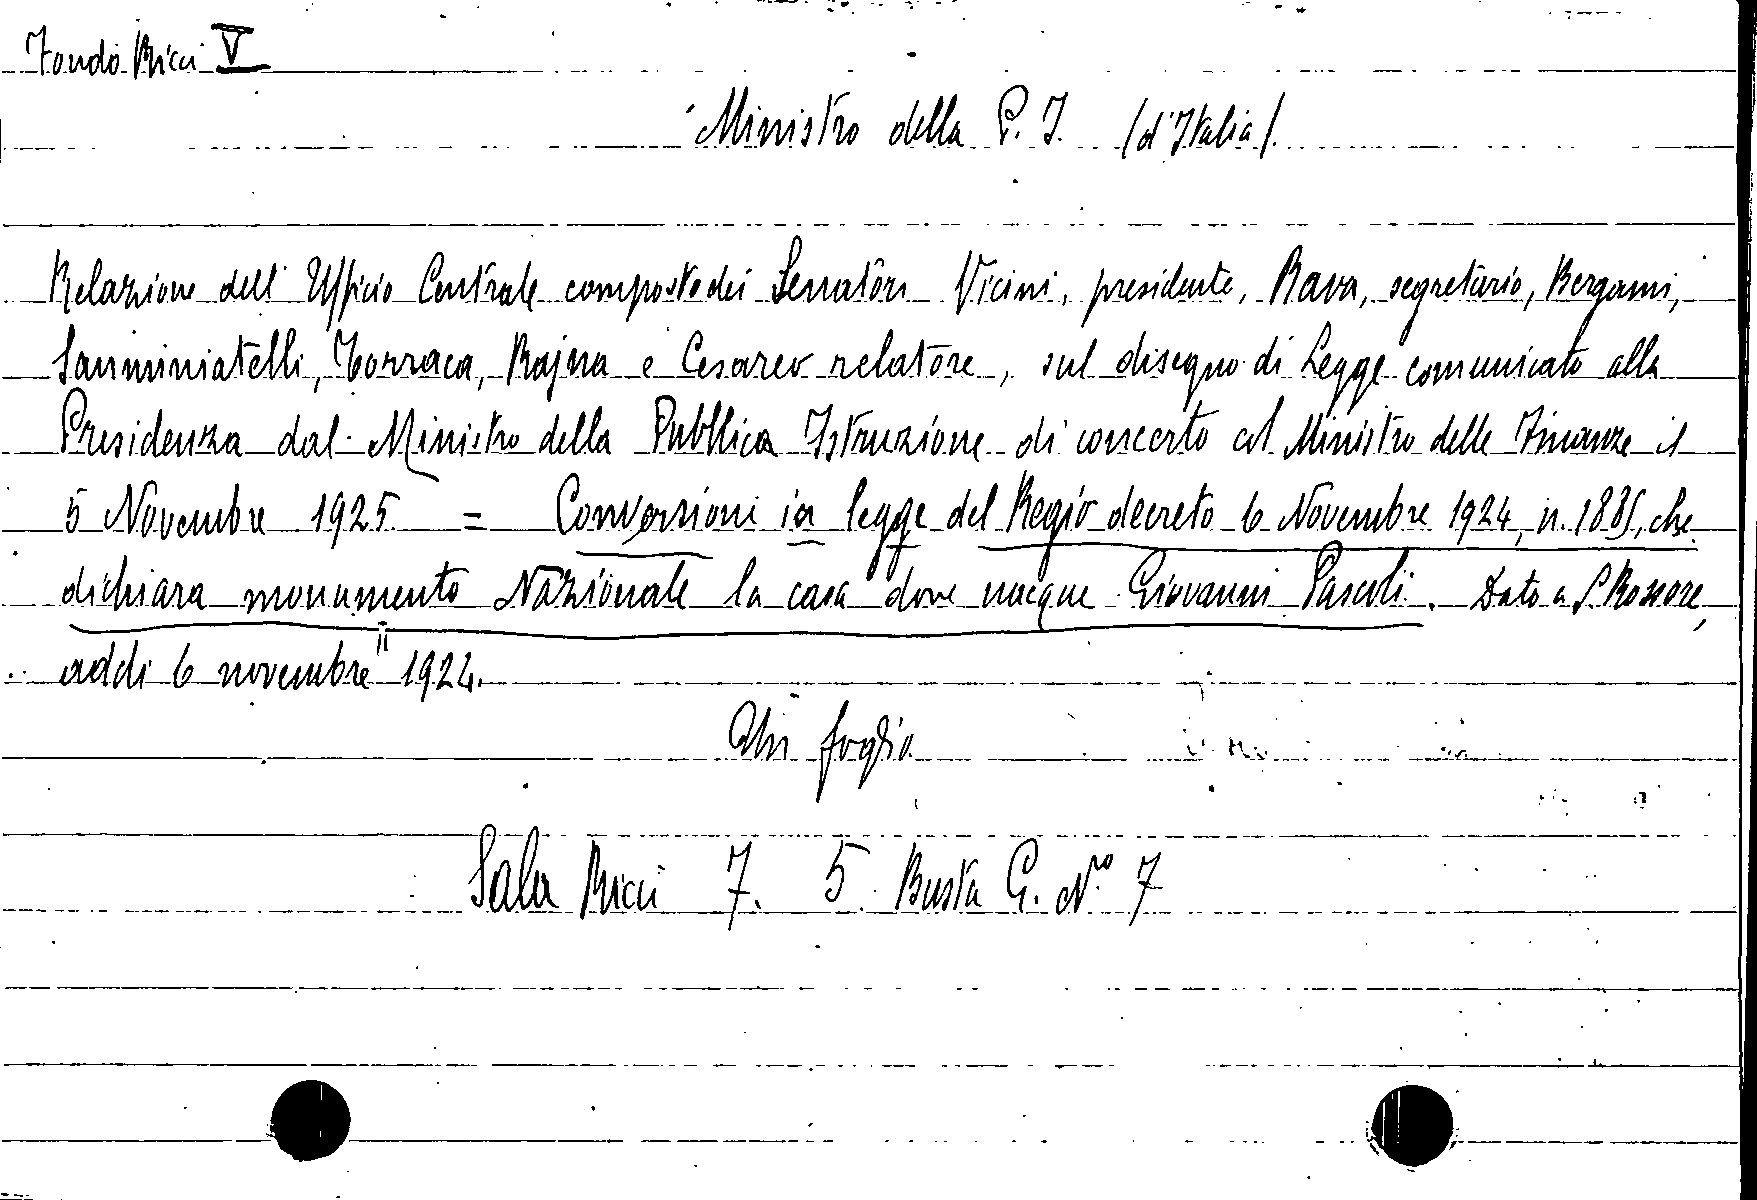 Fondo Ricci V
Ministro della P. I. (d'Italia).
Relazione dell'Ufficio Centrale composto dei Senatori Vicini, presidente, Rava, segretario, Bergami,
Sanminiatelli, Torraca, Rajna e Cesareo relatore, sul disegno di Legge comunicato alla
Presidenza dal Ministro della Pubblica Istruzione di concerto col Ministro delle Finanze il
5 Novembre 1925 = Conversioni in legge del Regio decreto 6 Novembre 1924, n. 1885, che
dichiara monumento Nazionale la casa dove nacque Giovanni Pascoli. Dato a S. Rossore,
addi 6 novembre" 1924.
Un foglio
Sala Ricci 7. 5. Busta G. Nro 7